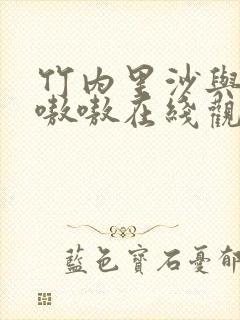 竹内里沙與
嗷嗷在綫觀
藍色寶石憂郁